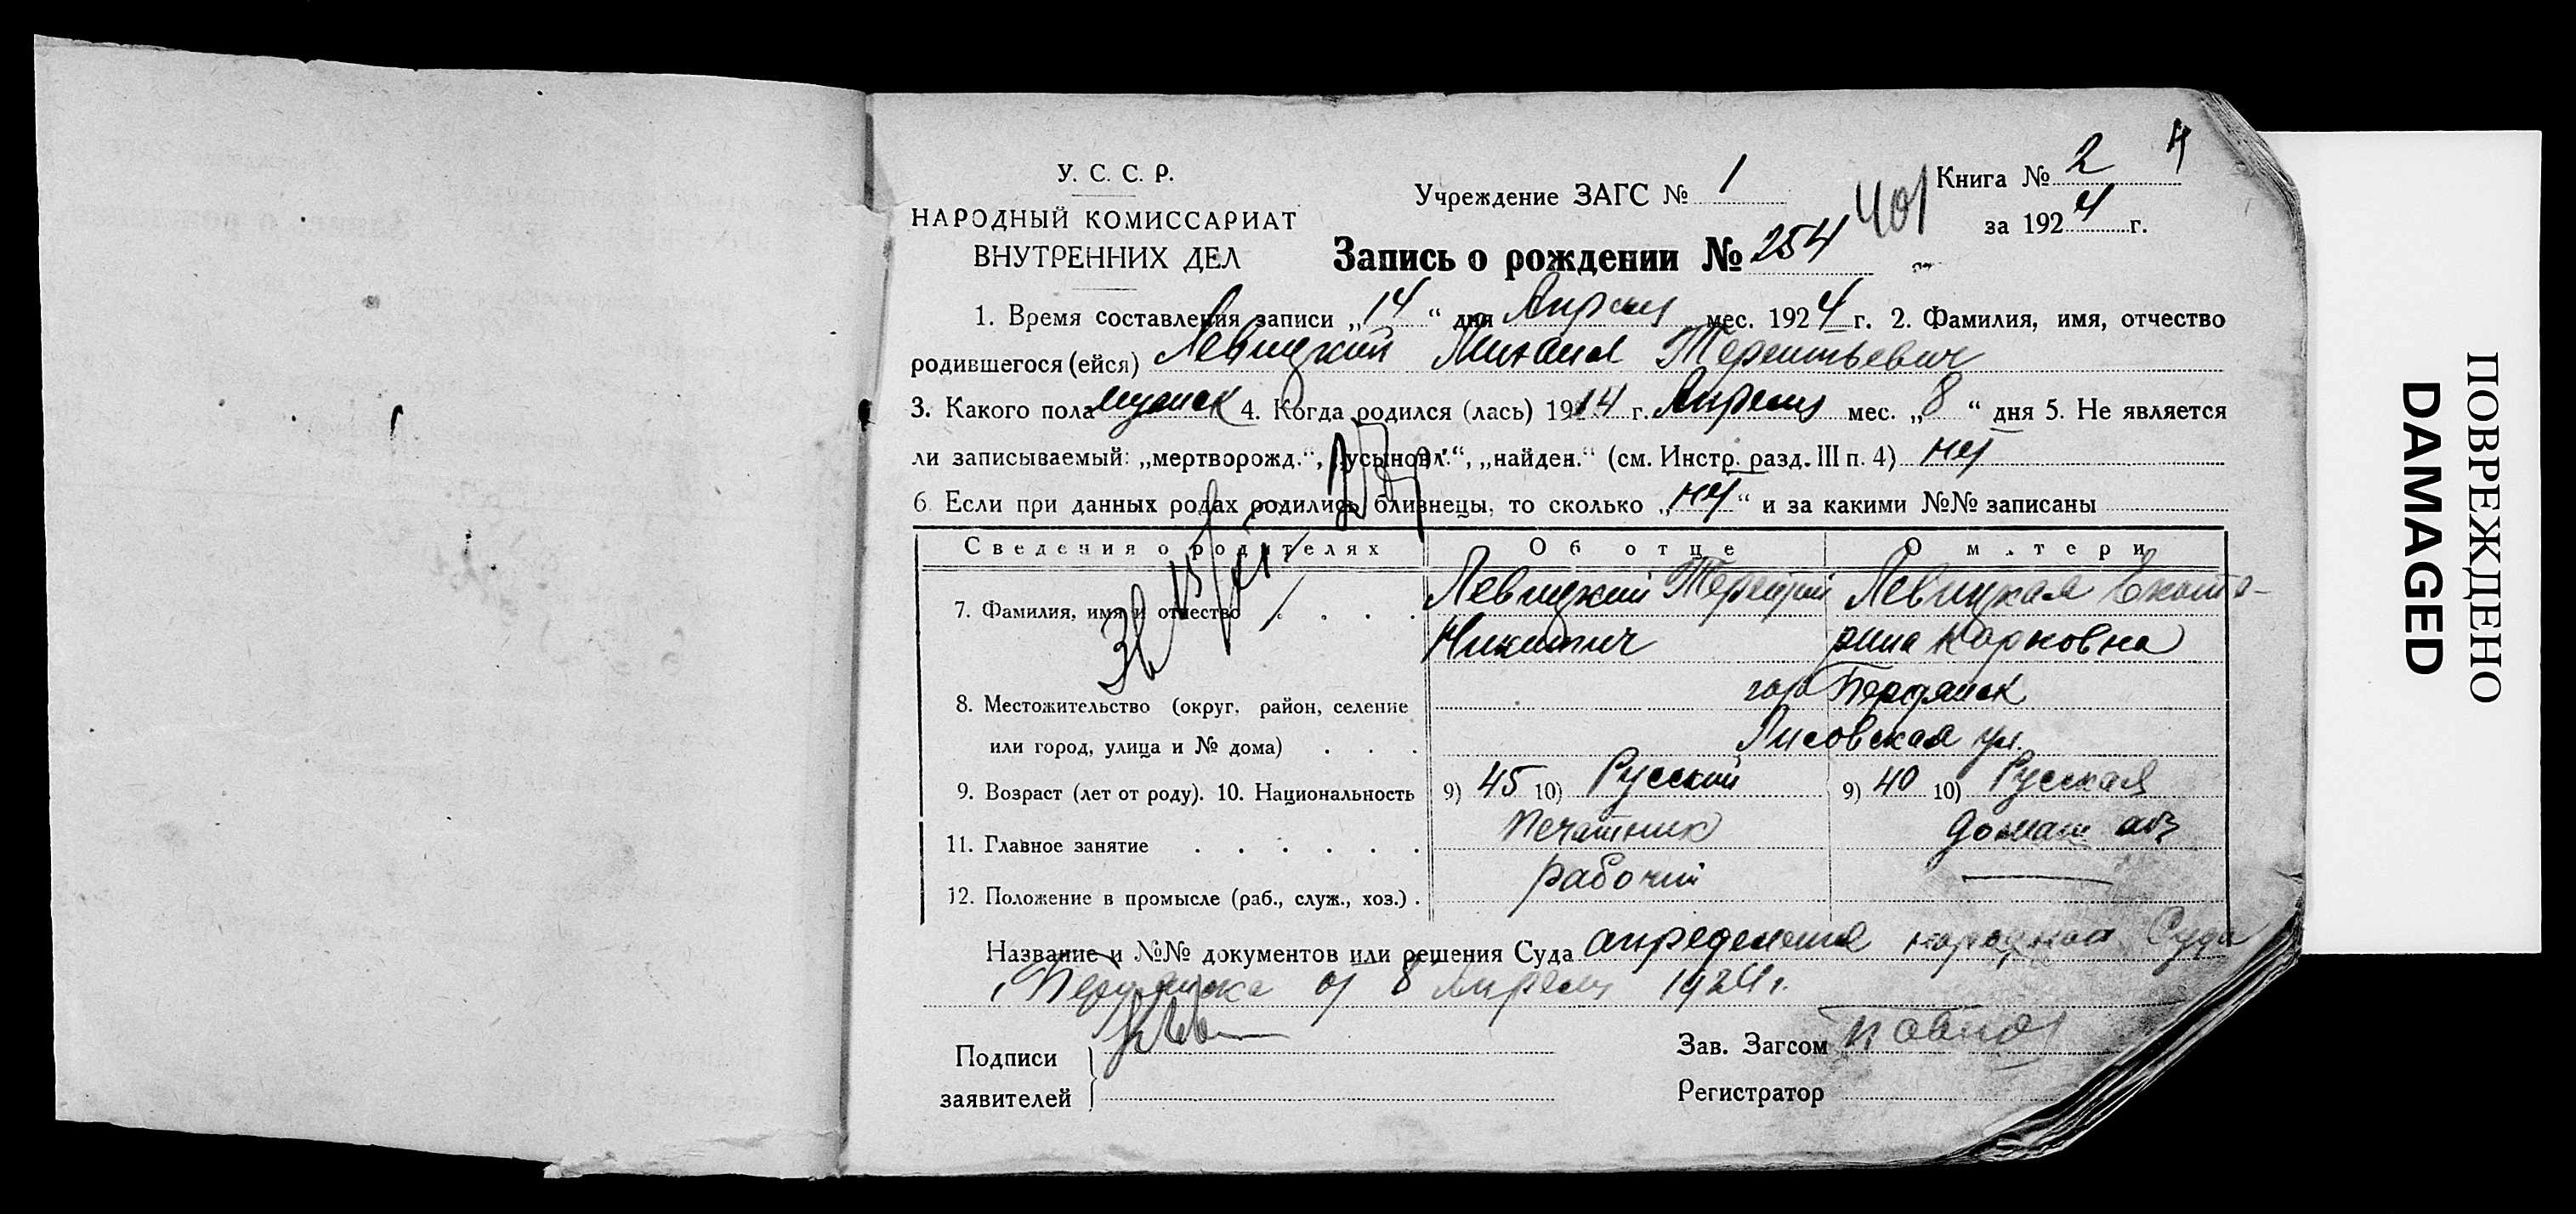 У. С. С. Р.
НАРОДНЫЙ КОМИССАРИАТ
ВНУТРЕННИХ ДЕЛ
Учреждение ЗАГС № 1
401
Книга № 2
4
за 1924 г.
Запись о рождении № 254
1. Время составления записи „14“ дня Апреля мес. 1924 г. 2. Фамилия, имя, отчество
родившегося (ейся) Левицкий Михаил Терентьевич
3. Какого пола мужск 4. Когда родился (лась) 1914 г. Апреля мес. „8“ дня 5. Не является
ли записываемый: „мертворожд.“, „усыновл.“, „найден.“ (см. Инстр. разд. III п. 4) нет
6 Если при данных родах родились близнецы, то сколько „нет“ и за какими №№ записаны
Сведения о родителях Об отце О матери
7. Фамилия, имя и отчество . . . . Левицкий Терентий Левицкая Екате-
Никитич рина Карповна
8. Местожительство (округ, район, селение гор Бердянск
или город, улица и № дома) . . . Лисовская ул.
9. Возраст (лет от роду). 10. Национальность 9) 45 10) Русский 9) 40 10) Русская
11. Главное занятие . . . . . . Печатник домаш
12. Положение в промысле (раб., служ., хоз.) . рабочий
Название и №№ документов или решения Суда определения народная Суда
Бердянска от 8 Апреля 1924 г.
Подписи
заявителей
Зав. Загсом
Регистратор
ПОВРЕЖДЕНО
DAMAGED